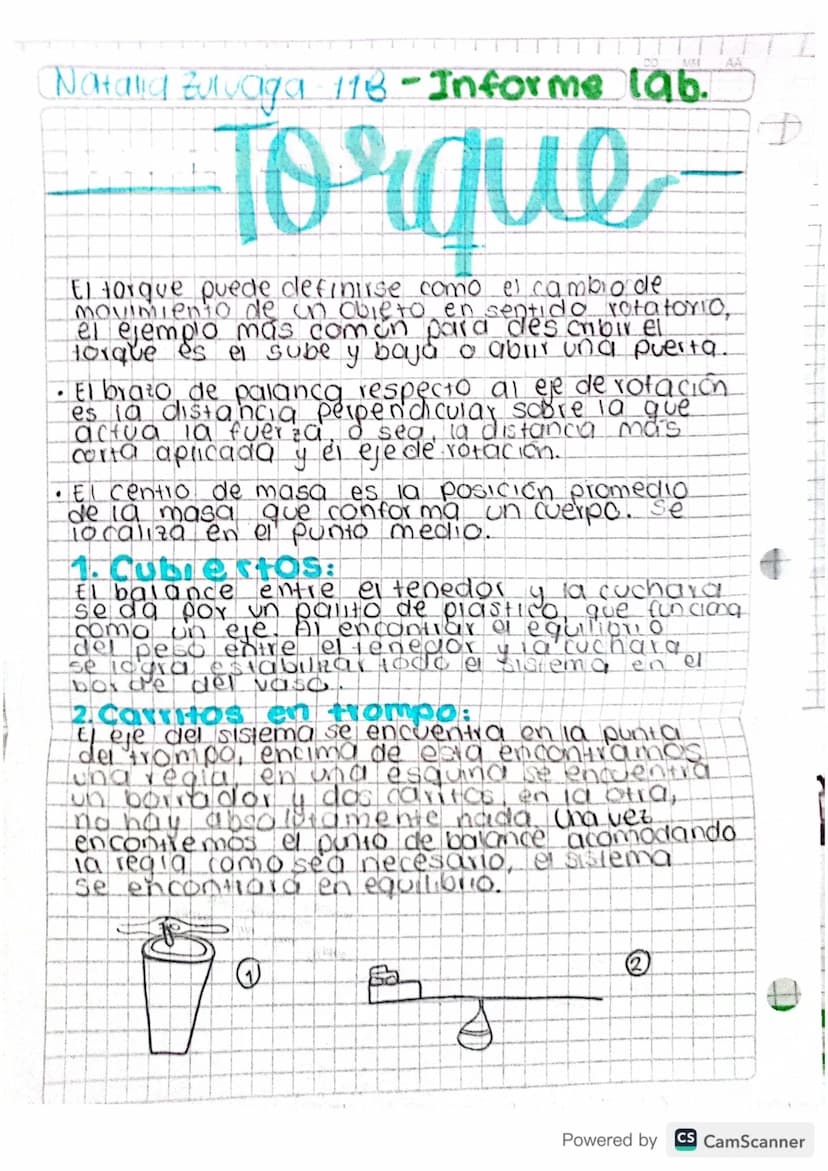 DD MM AA
Natalia Zuluaga 11B - Informe lab.
Torque
El torque puede definirse como el cambio de
movimiento de un objeto en sentido rotatorio,
el ejemplo más común para describir el
torque es el sube y baja o abrir una puerta.
• El brazo de palanca respecto al eje de rotación
es la distancia perpendicular sobre la que
actua la fuerza, o sea, la distanca más
corta aplicada y el eje de rotación.
• El centro de masa es la posición promedio
de la masa que conforma un cuerpo. Se
localiza en el punto medio.
1. Cubiertos:
El balance entre el tenedor y la cuchara
se da por un palito de plastico, que funciona
como un eje. Al encontrar el equilibrio
del peso entre el tenedor y la cuchara
se logra estabilizar todo el sistema en el
borde del vaso.
2. Carritos en trompo:
El eje del sistema se encuentra en la punta
del trompo, encima de esta encontramos
una regla, en una esquina se encuentra
un borrador y dos carritos, en la otra,
no hay absolutamente nada. Una vez
encontremos el punto de balance acomodando
la regla como sea necesario, el sistema
se encontrará en equilibrio.
1
2
Powered by CS CamScanner